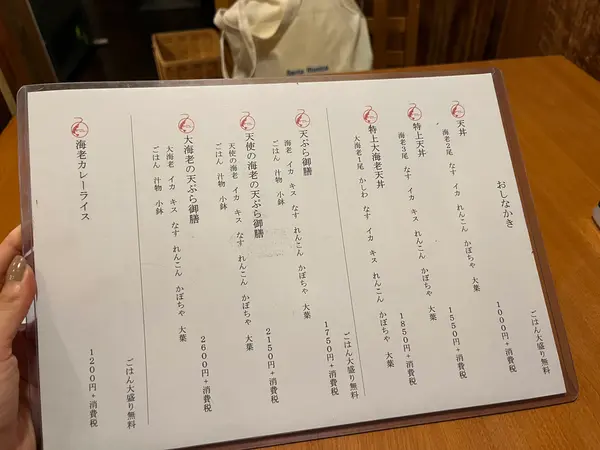 おしなかき
ごはん大盛り無料
天丼
海老2尾 なす イカ れんこん かぼちゃ 大葉
1000円+消費税
特上天丼
海老3尾 なす イカ キス れんこん かぼちゃ 大葉
1550円+消費税
特上大海老天丼
大海老1尾 かしわ なす イカ キス れんこん かぼちゃ 大葉
1850円+消費税
ごはん大盛り無料
天ぷら御膳
海老 イカ キス なす れんこん かぼちゃ 大葉
ごはん 汁物 小鉢
1750円+消費税
天使の海老の天ぷら御膳
天使の海老 イカ キス なす れんこん かぼちゃ 大葉
ごはん 汁物 小鉢
2150円+消費税
大海老の天ぷら御膳
大海老 イカ キス なす れんこん かぼちゃ 大葉
ごはん 汁物 小鉢
2600円+消費税
ごはん大盛り無料
海老カレーライス
1200円+消費税